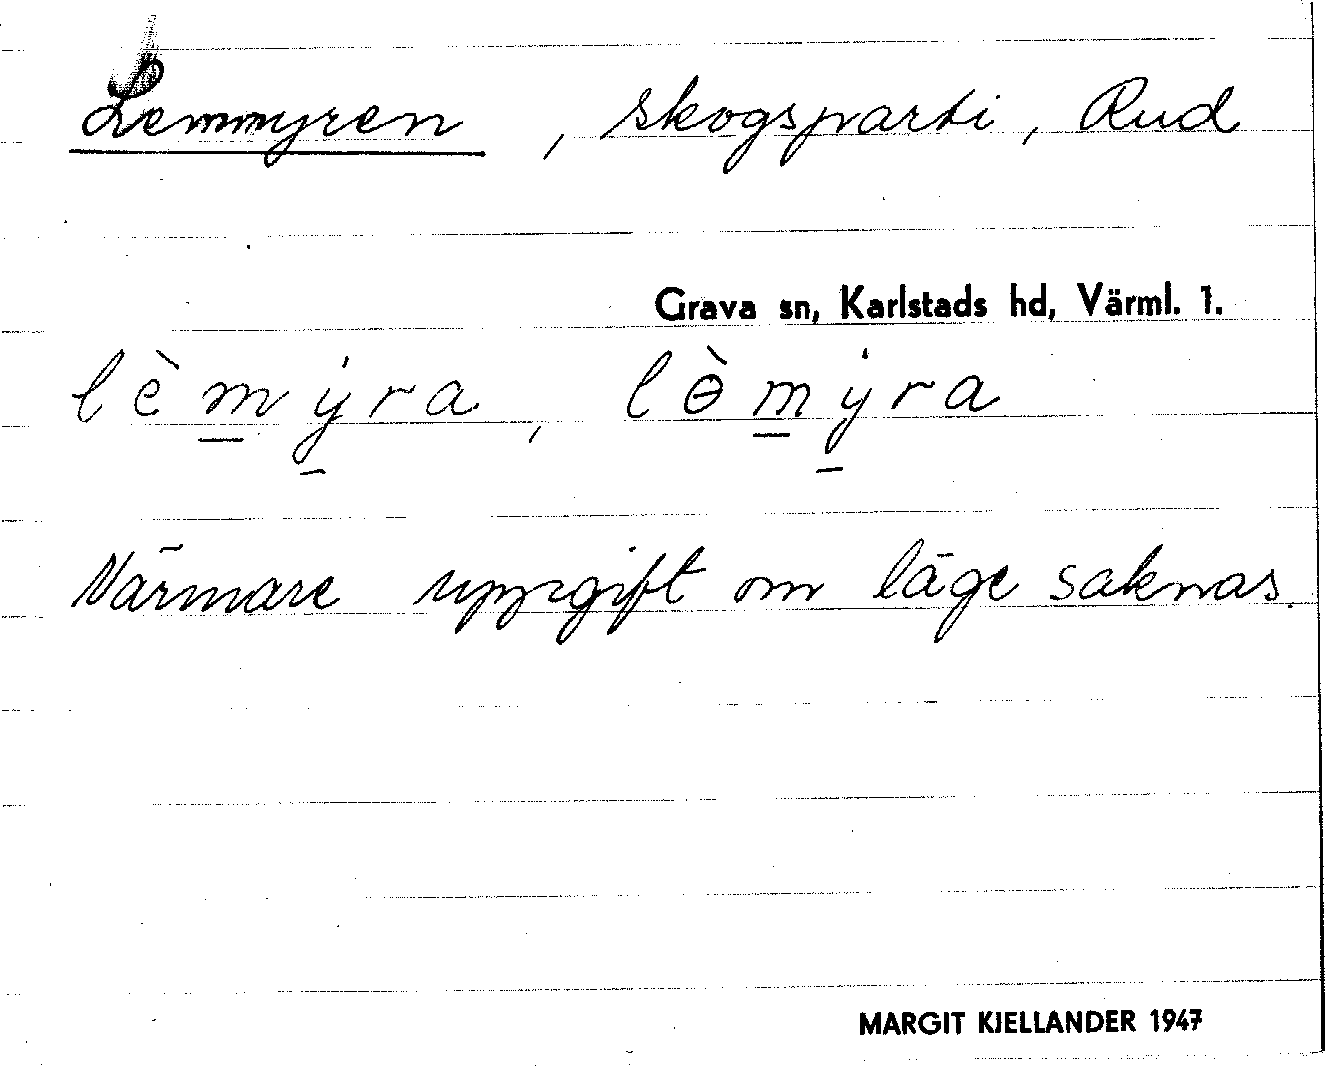 Lemmyren, skogsparti, Rud
Grava sn, Karlstads hd, Värml. 1.
lèm̲ẏ̲ra, lɵ̀m̲ẏ̲ra
Närmare uppgift om läge saknas.
MARGIT KJELLANDER 1947